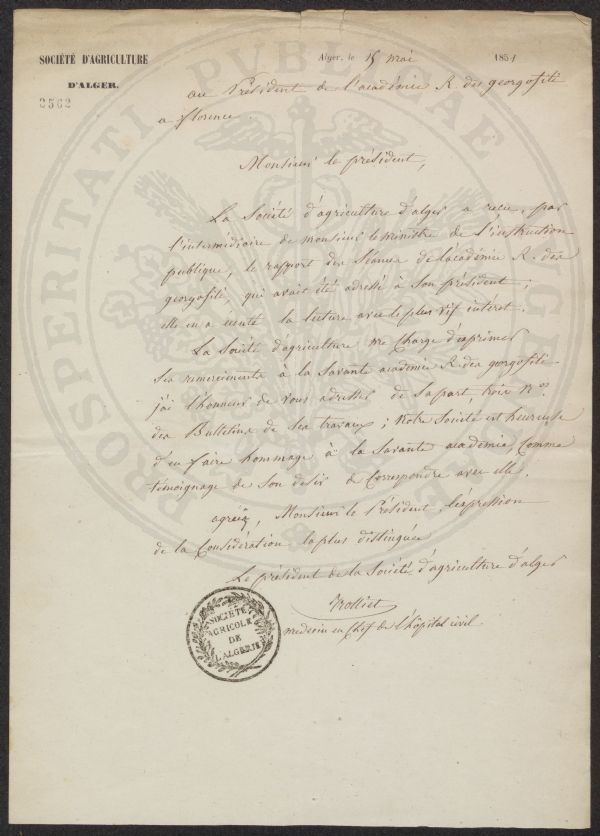 SOCIÉTÉ D'AGRICULTURE
D'ALGER.
2562
Alger, le 15 mai 1851
au Président de l'académie R. des georgofili
a florence.
Monsieur le président,
La Société d'agriculture d'alger a recu, par
l'intermédiaire de monsieur le ministre de l'instruction
publique, le rapport des Séances de l'académie R. des
georgofili, qui avait été adressé à Son président ;
elle en a écouté la lecture avec le plus vif intéret.
La Société d'agriculture me Charge d'exprimer
Ses remerciments à la Savante académie R. des georgofili
j'ai l'honneur de vous adresser de Sa part, trois Nos
des Bulletins de Ses travaux ; Notre Société est heureuse
d'en faire hommage à la Savante académie, Comme
témoignage de Son desir de Correspondre avec elle.
agréez, Monsieur le Président, l'expression
de la Considération la plus distinguée
Le président de la Société d'agriculture d'alger
medecin en Chef de l'hopital civil
SOCIÉTÉ
AGRICOLE
DE
L'ALGERIE
PROSPERITATI PUBLICAE AUGENDAE